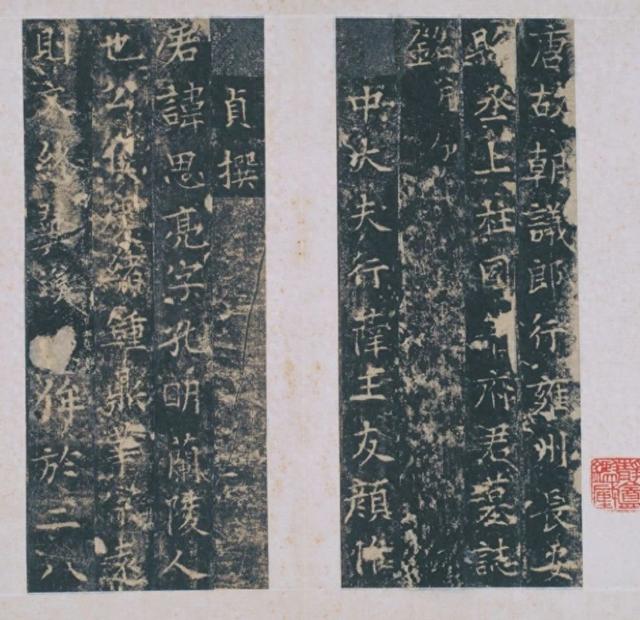 唐故朝議郎行雍州長安
縣丞上柱國蕭府君墓誌
銘
中大夫行薛王友顏惟
貞撰
君諱思亮字孔明蘭陵人
也公侯緒鍾鼎華遠
則文終漢於二八